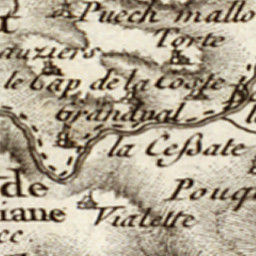 Puech mallo
t
Torte
auziers
le Cap de la Coste
Grandual
la Ceßate
de
Pouq
iane
Vialette
cc.